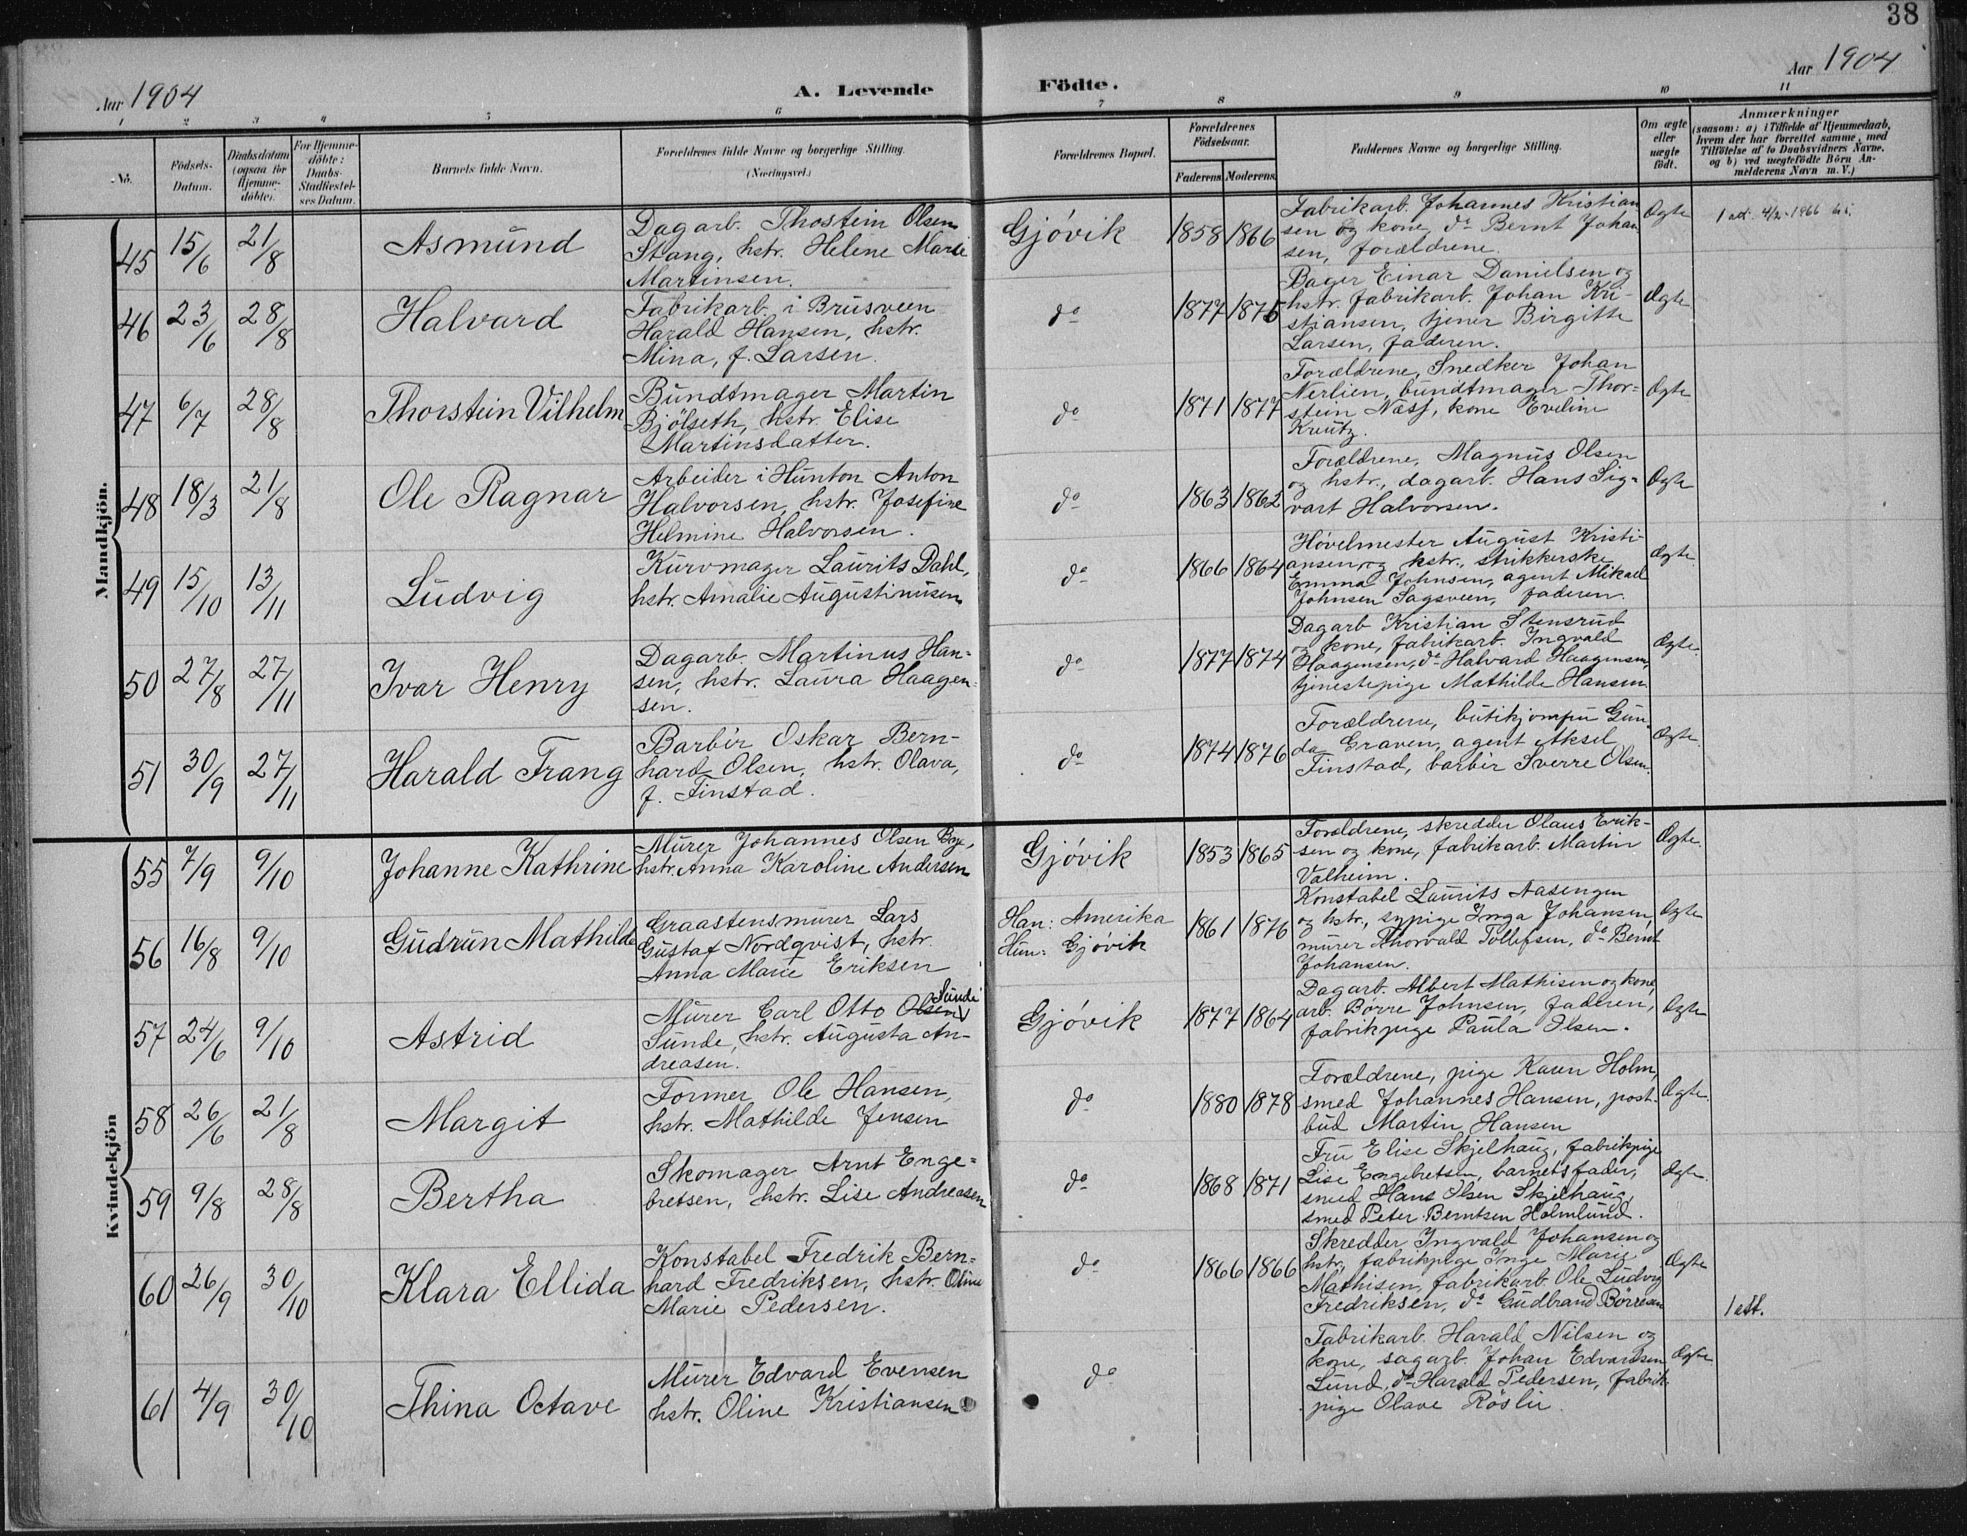 38
Aar 1904
A. Levende
Födte.
Aar 1904
1 2 3 4 5 6 7 8 9 10 11
No.
Födsels-
Datum.
Daabsdatum
(ogsaa for
Hjemme-
döbte).
For Hjemme-
döbte:
Daabs-
Stadfæstel-
ses Datum.
Barnets fulde Navn.
Forældrenes fulde Navne og borgerlige Stilling.
(Næringsvei.)
Forældrenes Bopæl.
Forældrenes
Födselsaar.
Faderens.
Moderens.
Faddernes Navne og borgerlige Stilling.
Om ægte
eller
uægte
födt.
Anmærkninger
(saasom: a) i Tilfælde af Hjemmedaab,
hvem der har forrettet samme, med
Tilföielse af to Daabsvidners Navne,
og b) ved uægtefödte Börn An-
melderens Navn m. V.)
Mandkjön.
45 15/6 21/8
Asmund
Dagarb. Thostein Olsen
Stang, hstr. Helene Marie
Martinsen.
Gjøvik
1858 1866
Fabrikarb. Johannes Kristian
sen og kone, do Bernt Johan
sen, forældrene.
Ægte
1 att. 4/2-1966
46 23/6 28/8
Halvard
Fabrikarb. i Brusveen
Harald Hansen, hstr.
Mina, f. Larsen.
do
1877 1875
Bager Einar Danielsen og
hstr. fabrikarb. Johan Kri-
stiansen, tjener Birgitte
Larsen, faderen.
Ægte
47 6/7 28/8
Thorstein Vilhelm
Bundtmager Martin
Bjölseth, hstr. Elise
Martinsdatter.
do
1871 1877
Forældrene, Snedker Johan
Nerlien, bundtmager Thor=
stein Næss, kone Eveline
Kreutz.
Ægte
48 18/3 21/8
Ole Ragnar
Arbeider i Hunton Anton
Halvorsen, hstr. Josefine
Helmine Halvorsen.
do
1863 1862
Forældrene, Magnus Olsen
og hstr., dagarb. Hans Sig=
vart Halvorsen.
Ægte
49 15/10 13/11
Ludvig
Kurvmager Laurits Dahl,
hstr. Amalie Augustinusen
do
1866 1864
Høvelmester August Kristi-
ansen og hstr., strikkerske
Emma Johnsen, agent Mikael
Johnsen Sagsveen, faderen.
Ægte
50 27/8 27/11
Ivar Henry
Dagarb. Martinus Han=
sen, hstr. Laura Haagen-
sen.
do
1877 1874
Dagarb Kristian Stensrud
og kone, fabrikarb. Ingvald
Haagensen, do Halvard Haagensen,
tjenestepige Mathilde Hansen
Ægte.
51 30/9 27/11
Harald Frang
Barbér Oskar Bern-
hard Olsen, hstr. Olava,
f. Finstad.
do
1874 1876
Forældrene, butikjomfru Gun-
da Graven, agent Aksel
Finstad, barbér Sverre Olsen.
Ægte.
Kvindekjön
55 7/9 9/10
Johanne Kathrine
Murer Johannes Olsen
hstr. Anna Karoline Andersen
Gjøvik
1853 1865
Forældrene, skredder Olaus Erik-
sen og kone, fabrikarb. Martin
Valheim.
Ægte.
56 16/8 9/10
Gudrun Mathilde
Graastensmurer Lars
Gustaf Nordqvist, hstr.
Anna Marie Eriksen
Han: Amerika
Hun: Gjøvik
1861 1876
Konstabel Laurits Aasengen
og hstr., sypige Inga Johansen,
murer Thorvald Tollefsen, do Bernt
Johansen.
Ægte
57 24/6 9/10
Astrid
Sunde
Murer Carl Otto Olsen
Sunde, hstr. Augusta An-
dreasen.
Gjøvik
1877 1864
Dagarb. Albert Mathisen og kone,
arb. Børre Johnsen, faderen,
fabrikpige Paula Olsen.
Ægte
58 26/6 21/8
Margit
Former Ole Hansen,
hstr. Mathilde Jensen
do
1880 1878
Forældrene, pige Karen Holm,
smed Johannes Hansen, post-
bud Martin Hansen
Ægte.
59 9/8 28/8
Bertha
Skomager Arnt Enge=
bretsen, hstr. Lise Andreasen
do
1868 1871
Fru Elise Skjelhaug, fabrikpige
Lise Engebretsen, barnets fader,
smed Hans Olsen Skjelhaug,
smed Peter Berntsen Holmlund.
Ægte.
60 26/9 30/10
Klara Ellida
Konstabel Fredrik Bern=
hard Fredriksen, hstr. Oline
Marie Pedersen.
do
1866 1866
Skredder Ingvald Johansen og
hstr., fabrikpige Inge Marie
Mathisen, fabrikarb. Ole Ludvig
Fredriksen, do Gudbrand Børresen
Ægte
1 att.
61 4/9 30/10
Thina Octave
Murer Edvard Evensen
hstr. Oline Kristiansen
do
Fabrikarb. Harald Nilsen og
kone, sagarb. Johan Edvardsen
Lund, do Harald Pedersen, fabrik-
pige Olave Röslie.
Ægte